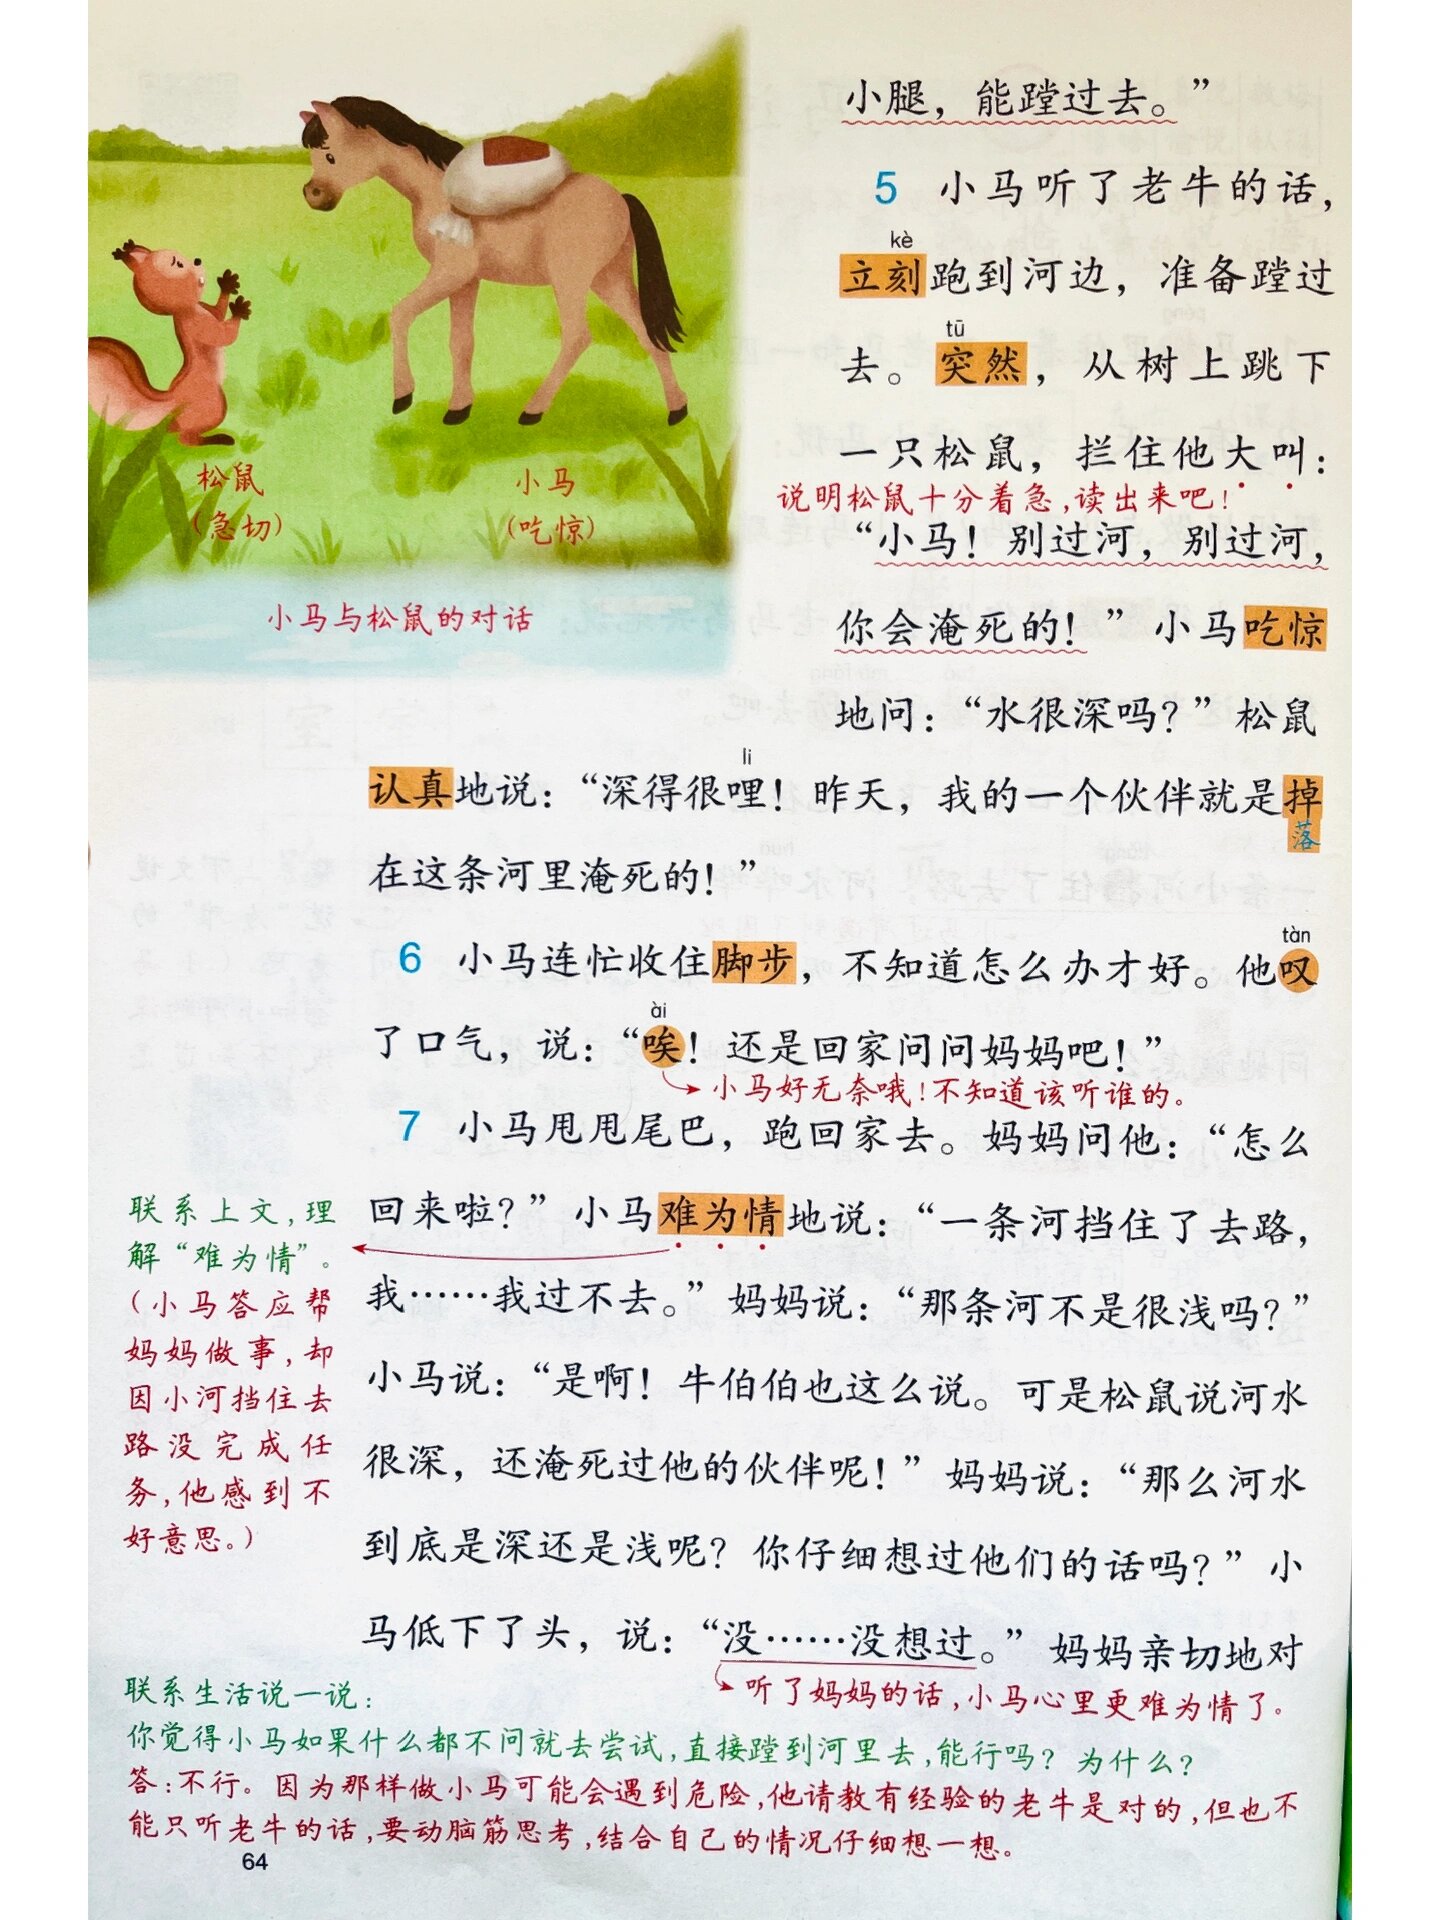 小腿，能蹚过去。”
5 小马听了老牛的话，
kè
立刻跑到河边，准备蹚过
tū
去。突然，从树上跳下
一只松鼠，拦住他大叫：
说明松鼠十分着急，读出来吧！
“小马！别过河，别过河，
你会淹死的！”小马吃惊
地问：“水很深吗？”松鼠
松鼠
（急切）
小马
（吃惊）
小马与松鼠的对话
li
认真地说：“深得很哩！昨天，我的一个伙伴就是掉
落
在这条河里淹死的！”
tàn
6 小马连忙收住脚步，不知道怎么办才好。他叹
ài
了口气，说：“唉！还是回家问问妈妈吧！”
小马好无奈哦！不知道该听谁的。
7 小马甩甩尾巴，跑回家去。妈妈问他：“怎么
回来啦？”小马难为情地说：“一条河挡住了去路，
我……我过不去。”妈妈说：“那条河不是很浅吗？”
小马说：“是啊！牛伯伯也这么说。可是松鼠说河水
很深，还淹死过他的伙伴呢！”妈妈说：“那么河水
到底是深还是浅呢？你仔细想过他们的话吗？”小
马低下了头，说：“没……没想过。”妈妈亲切地对
听了妈妈的话，小马心里更难为情了。
联系上文，理
解“难为情”。
（小马答应帮
妈妈做事，却
因小河挡住去
路没完成任
务，他感到不
好意思。）
联系生活说一说：
你觉得小马如果什么都不问就去尝试，直接蹚到河里去，能行吗？为什么？
答：不行。因为那样做小马可能会遇到危险，他请教有经验的老牛是对的，但也不
能只听老牛的话，要动脑筋思考，结合自己的情况仔细想一想。
64